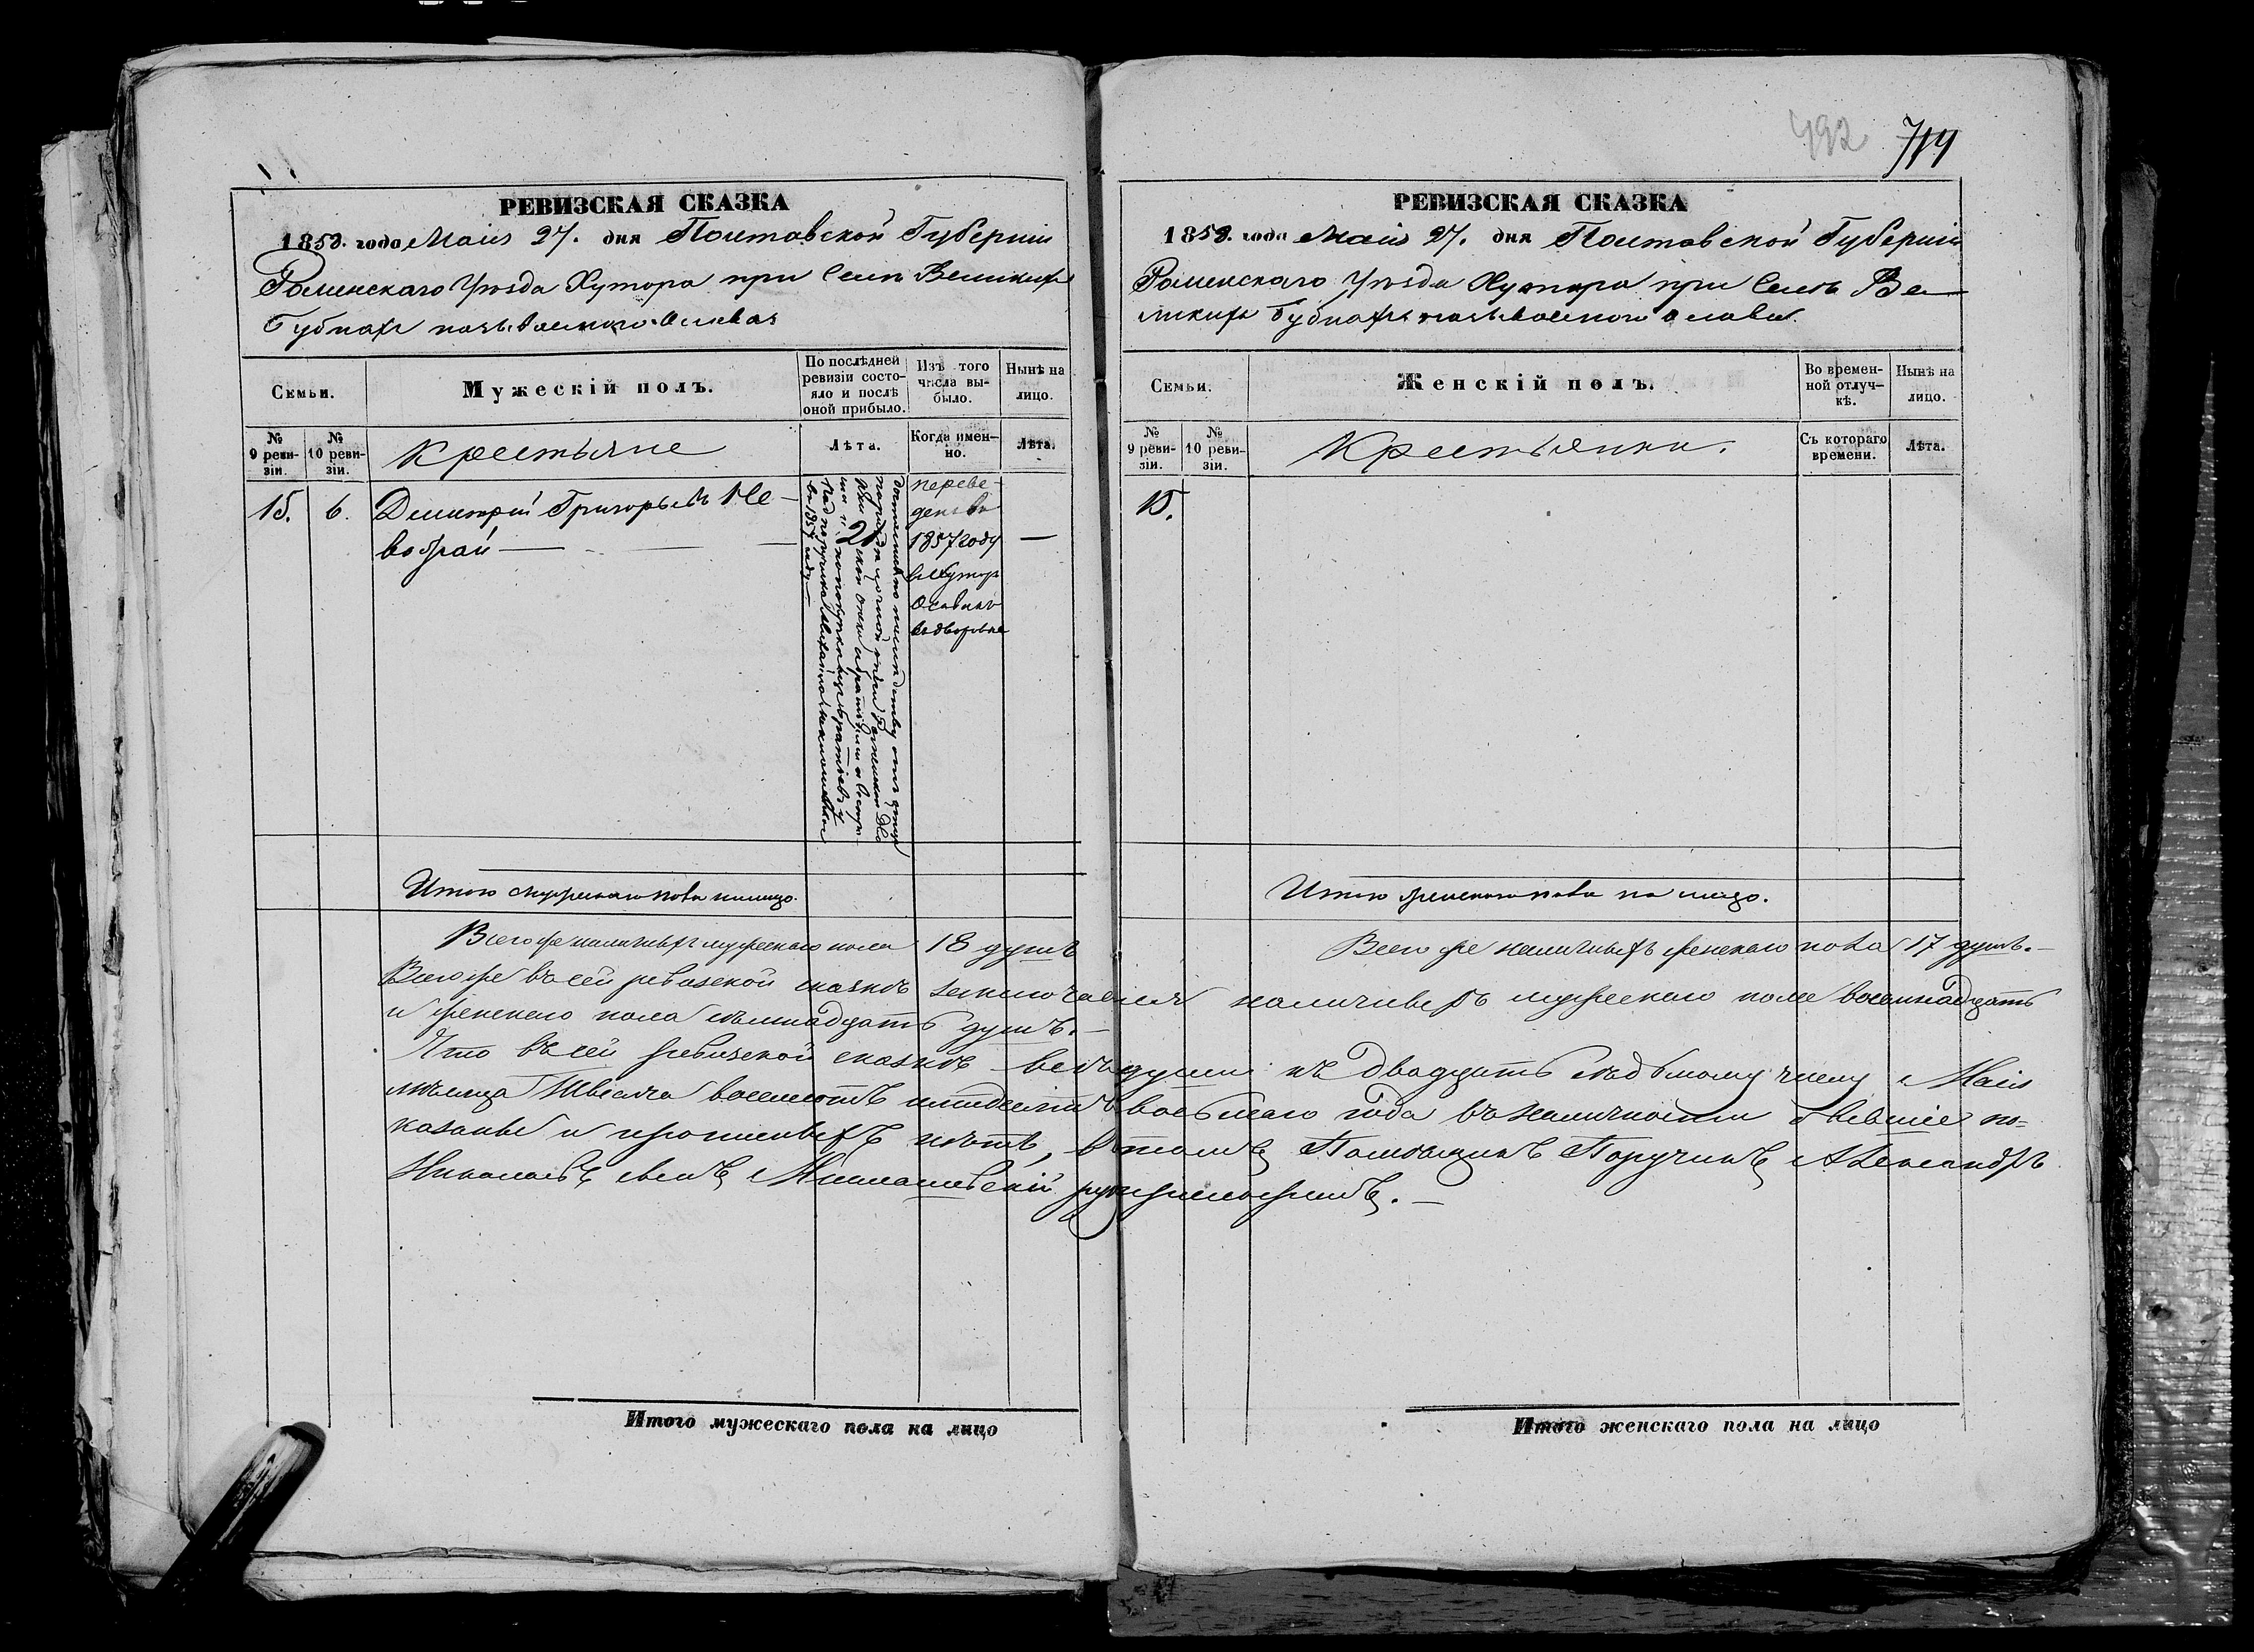 492 719
РЕВИЗСКАЯ СКАЗКА
1858. года Маія 27. дня Полтавской Губерніи
Роменскаго Уѣзда Хутора при Селѣ Великихъ
Бубнахъ называемого
Семьи.
Мужескій полъ.
По послѣдней ревизіи состояло и послѣ оной прибыло.
Изъ того числа выбыло.
Нынѣ на лицо.
№ 9 ревизіи.
№ 10 ревизіи.
Крестьяне
Лѣта.
Когда именно.
Лѣта.
15. 6. Дмитрій Григорьевъ Не-
вобрай —
21
переве-
денъ въ
1857 году
въ Хуторъ
—
въ 1854 году
Итого мужескаго пола на лицо.
Всего же наличныхъ мужескаго пола 18 душъ
РЕВИЗСКАЯ СКАЗКА
1858. года Маія 27. дня Полтавской Губерніи
Роменскаго Уѣзда Хутора при Селѣ Ве-
ликихъ Бубнахъ называемого
Семьи.
Женскій полъ.
Во временной отлучкѣ.
Нынѣ на лицо.
№ 9 ревизіи.
№ 10 ревизіи.
Крестьянки.
Съ котораго времени.
Лѣта.
15.
Итого женскаго пола на лицо.
Всего же наличныхъ женскаго пола 17 душъ.—
Всего же въ сей ревизской сказкѣ заключается наличныхъ мужескаго пола восемнадцать
и женскаго пола семнадцать душъ.—
Что въ сей ревизской сказкѣ всѣ души къ двадцать седьмому числу Маія
мѣсяца тысяча восемьсотъ пятьдесятъ восьмаго года въ наличности бывшіе по-
казаны и прописныхъ нѣтъ, въ томъ Помѣщикъ Поручикъ Александръ
Николаевъ сынъ руку приложилъ.—
Итого мужескаго пола на лицо
Итого женскаго пола на лицо